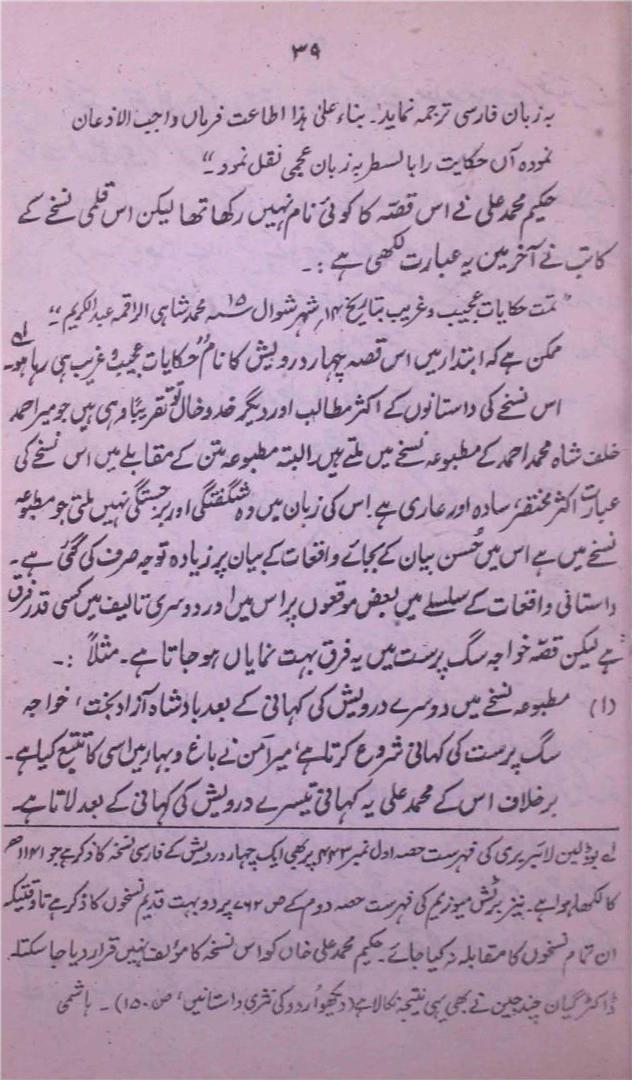 ۳۹
بہ زبان فارسی ترجمہ نماید۔ بناء علیٰ ہذا اطاعت فرماں واجب الاذعان
نمودہ آں حکایت را بالسطر بہ زبان عجمی نقل نمود۔“
حکیم محمد علی نے اس قصّہ کا کوئی نام نہیں رکھا تھا لیکن اس قلمی نسخے کے
کاتب نے آخر میں یہ عبارت لکھی ہے :۔
”تمت حکایات عجیب و غریب بتاریخ ۱۴؍ شہر شوال ۱۵ سنہ محمد شاہی الراقمہ عبدالکریم“۔
ممکن ہے کہ ابتدا میں اس قصہ چہار درویش کا نام ”حکایات عجیب و غریب ہی رہا ہو۔ لے
اس نسخے کی داستانوں کے اکثر مطالب اور دیگر خد و خال تو تقریباً وہی ہیں جو میر احمد
خلف شاہ محمد احمد کے مطبوعہ نسخے میں ملتے ہیں البتہ مطبوعہ متن کے مقابلے میں اس نسخے کی
عبارت اکثر مختصر، سادہ اور عاری ہے اس کی زبان میں وہ شگفتگی اور برجستگی نہیں ملتی جو مطبوعہ
نسخے میں ہے اس میں حُسن بیان کے بجائے واقعات کے بیان پر زیادہ توجہ صرف کی گئی ہے۔
داستانی واقعات کے سلسلے میں بعض موقعوں پر اس میں اور دوسری تالیف میں کسی قدر فرق
ہے لیکن قصّہ خواجہ سگ پرست میں یہ فرق بہت نمایاں ہو جاتا ہے۔ مثلاً :۔
(۱) مطبوعہ نسخے میں دوسرے درویش کی کہانی کے بعد بادشاہ آزاد بخت، خواجہ
سگ پرست کی کہانی شروع کرتا ہے، میر امن نے باغ و بہار میں اسی کا تتبع کیا ہے۔
برخلاف اس کے محمد علی یہ کہانی تیسرے درویش کی کہانی کے بعد لاتا ہے۔
لے بوڈلین لائبریری کی فہرست حصہ اول نمبر ۴۴۳ پر بھی ایک چہار درویش کے فارسی نسخہ کا ذکر ہے جو ۱۱۴۱ھ
کا لکھا ہوا ہے۔ نیز برٹش میوزیم کی فہرست حصہ دوم کے ص ۷۶۲ پر دو بہت قدیم نسخوں کا ذکر ہے تا وقتیکہ
ان تمام نسخوں کا مقابلہ نہ کیا جائے۔ حکیم محمد علی خاں کو اس نسخہ کا مؤلف نہیں قرار دیا جا سکتا۔
ڈاکٹر گیان چند جین نے بھی یہی نتیجہ نکالا ہے (دیکھو اُردو کی نثری داستانیں، ص ۱۵۰)۔ ہاشمی